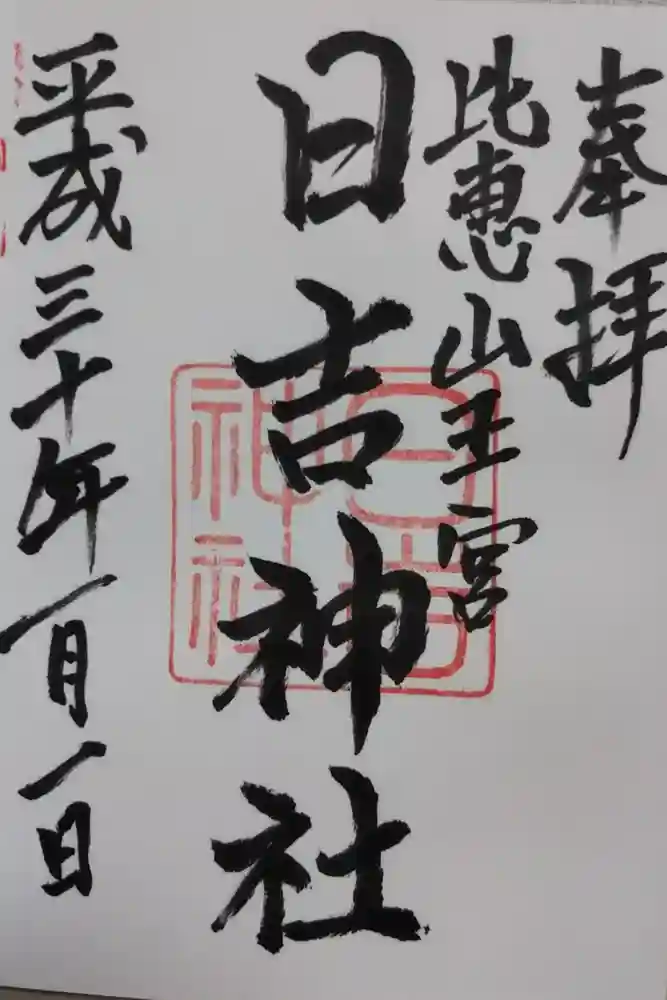 奉拝
比恵山王宮
日吉神社
日吉神社
平成三十年一月一日